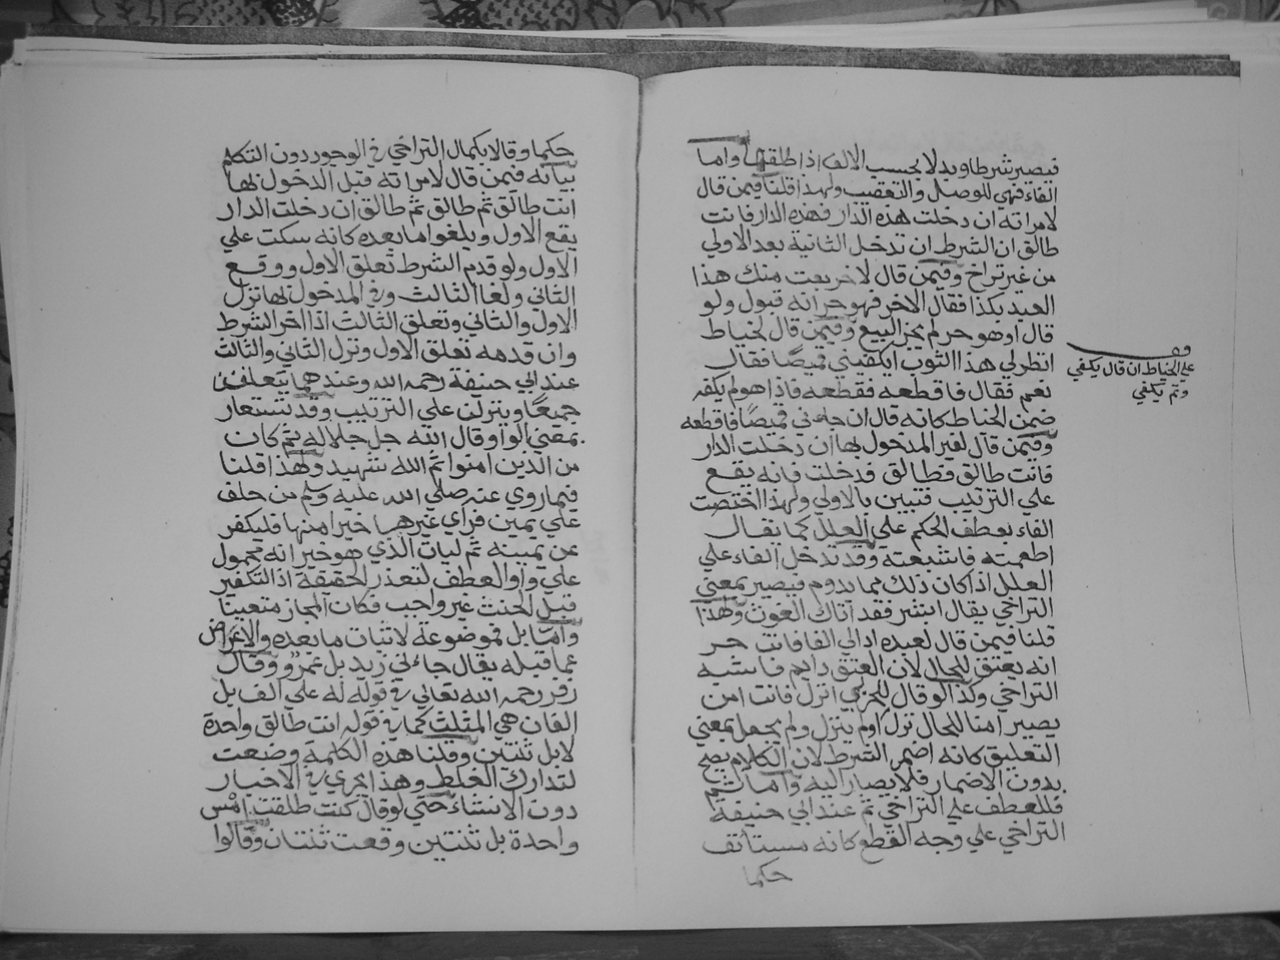 فيصير شرطا وبدلا بحسب الالف اذا طلقتها واما
الفاء فهي للوصل والتعقيب ولهذا قلنا فيمن قال
لامراته ان دخلت هذه الدار فهذه الدار فانت
طالق ان الشرط ان تدخل الثانية بعد الاولي
من غير تراخ وفيمن قال لاخر بعت منك هذا
العبد بكذا فقال الاخر فهو حر انه قبول ولو
قال او هو حر لم يجز البيع وفيمن قال لخياط
انظر لي هذا الثوب ايكفيني قميصًا فقال
نعم فقال فاقطعه فقطعه فاذا هو لم يكفه
ضمن الخياط كانه قال ان جاءني قميصًا فاقطعه
وفيمن قال لغير المدخول بها ان دخلت الدار
فانت طالق فطالق فدخلت فانه يقع
علي الترتيب فتبين بالاولي ولهذا اختصت
الفاء بعطف الحكم علي العلل كما يقال
اطعمته فاشبعته وقد تدخل الفاء علي
العلل اذ كان ذلك مما يدوم فيصير بمعني
التراخي يقال ابشر فقد اتاك الغوث ولهذا
قلنا فيمن قال لعبده اد الي الفا فانت حر
انه يعتق للحال لان العتق دايم فاشبه
التراخي وكذا لو قال للحربي انزل فانت امن
يصير امنا للحال نزل او لم ينزل ولم يجعل بمعني
التعليق كانه اضمر الشرط لان الكلام يصح
بدون الاضمار فلا يصار اليه واما ثم
فللعطف علي التراخي ثم عند ابي حنيفة
التراخي علي وجه القطع كانه مستانف
حكما
علي الخياط ان قال يكفي
ولم يكفي
حكما وقالا بكمال التراخي في الوجود دون التكلم
بيانه فيمن قال لامراته قبل الدخول بها
انت طالق ثم طالق ثم طالق ان دخلت الدار
يقع الاول ويلغوا ما بعده كانه سكت علي
الاول ولو قدم الشرط تعلق الاول ووقع
الثاني ولغا الثالث وفي المدخول بها نزل
الاول والثاني وتعلق الثالث اذا اخر الشرط
وان قدمه تعلق الاول ونزل الثاني والثالث
عند ابي حنيفة رحمه الله وعندهما يتعلقن
جميعًا وينزلن علي الترتيب وقد تستعار
بمعني الواو قال الله جل جلاله ثم كان
من الذين امنوا ثم الله شهيد ولهذا قلنا
فيما روي عنه صلي الله عليه وسلم من حلف
علي يمين فراي غيرها خيرا منها فليكفر
عن يمينه ثم ليات الذي هو خير انه محمول
علي واو العطف لتعذر الحقيقة اذ التكفير
قبل الحنث غير واجب فكان المجاز متعينا
واما بل فموضوعة لاثبات ما بعده والاعراض
عما قبله يقال جاءني زيد بل عمرو وقال
زفر رحمه الله تعالي في قوله له علي الف بل
الفان هي الثلث كما في قوله انت طالق واحدة
لا بل ثنتين وقلنا هذه الكلمة وضعت
لتدارك الغلط وهذا يجري في الاخبار
دون الانشاء حتي لو قال كنت طلقت امس
واحدة بل ثنتين وقعت ثنتان وقالوا